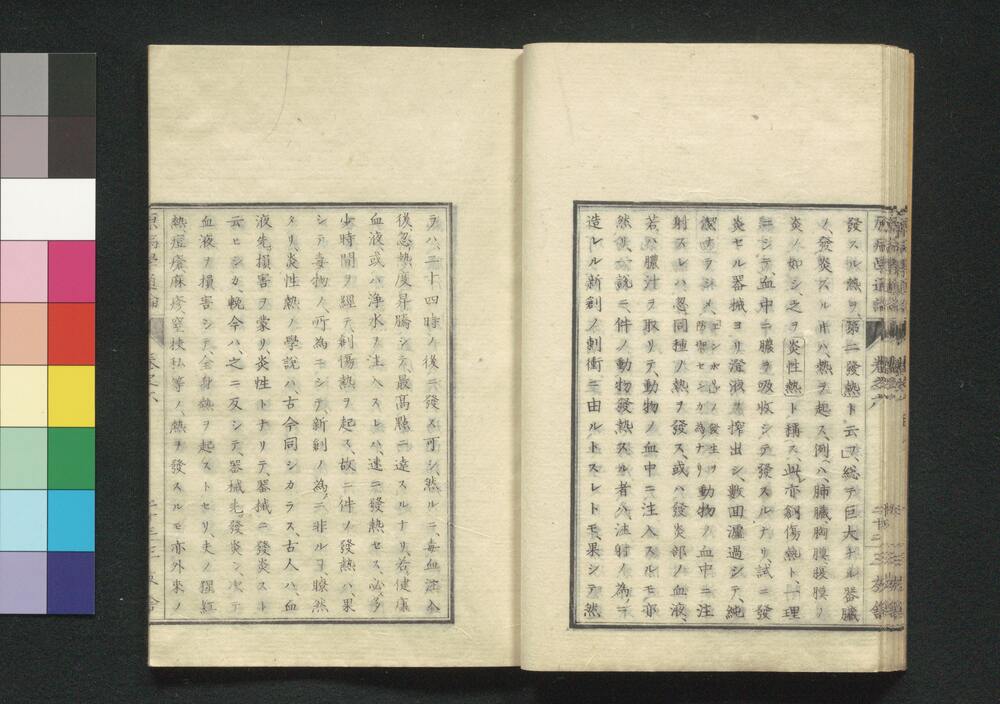 發スル熱ヲ、第二發熱ト云フ、」総テ巨大ナル器臓
ノ、發炎スルキハ、熱ヲ起ス、例ヘハ、肺臓、胸膜、腹膜ノ
炎ノ如シ、之ヲ炎性熱ト稱ス、此亦創傷熱ト、一理
ニシテ、血中ニ膿ヲ吸收シテ發スルナリ、試ニ發
炎セル器械ヨリ澄液ヲ搾出シ、數回瀘過シテ、純
潔ナラシメ、動物ノ血中ニ注
射スレハ、忽同種ノ熱ヲ發ス、或ハ發炎部ノ血液、
若ハ膿汁ヲ取リテ、動物ノ血中ニ注入スルモ亦
然、一說ニ、件ノ動物發熱スル者ハ、注射ノ爲ニ、
造レル新創ノ刺衝ニ由ルトスレトモ、果シテ然
ラハ、二十四時ノ後ニ發ス可シ、然ルニ、毒血注入
後、忽熱度昇騰シテ、最高點ニ達スルナリ、若健康
血液、或ハ浄水ヲ注入スレハ、速ニ發熱セス、必多
少時間ヲ經テ、創傷熱ヲ起ス、故ニ件ノ發熱ハ、果
シテ毒物ノ所為ニシテ、新創ノ為ニ非ル丁瞭然
タリ、炎性熱ノ學說ハ、古今同シカラス、古人ハ、血
液先損害ヲ蒙リ、炎性トナリテ、器械ニ發炎スト
云ヒシカ、輓今ハ、之ニ反シテ、器械先發炎シ、次テ
血液ヲ損害シテ、全身熱ヲ起ストセリ、夫ノ猩紅
熱、痘瘡、麻疹、窒扶私等ノ、熱ヲ發スルモ、亦外來ノ